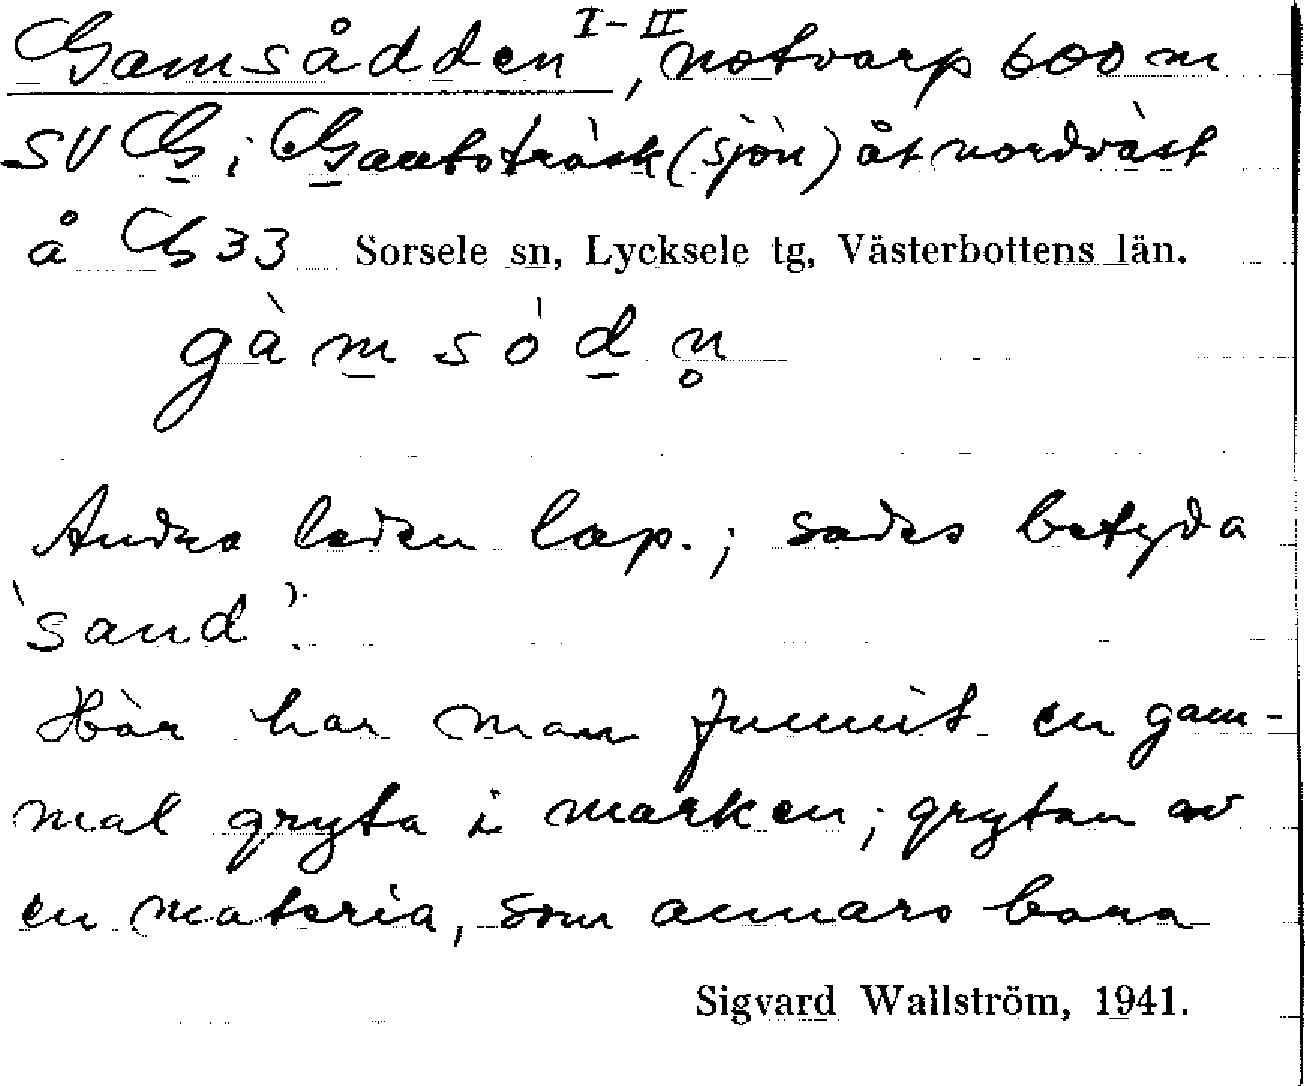 Gamsådden I-II, notvarp 600 m
SV G i Gautoträsk (sjön) åt nordväst
å G 33 Sorsele sn, Lycksele tg, Västerbottens län.
gàmsódn̥
Andra leden lap.; sades betyda
'sand'.
Här har man funnit en gam-
mal gryta i marken; grytan av
en materia, som annars bara
Sigvard Wallström, 1941.